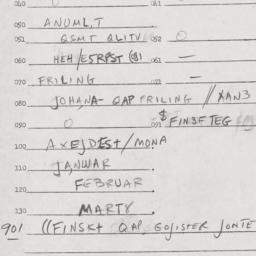 040
041
050 ANUML,T
051 QSMT QLITV 052 O
060 HEH/ESRPST ($1 061 —
070 FRILING 053 —
080 JOHANA- QAP FRILING // XAN3
090 O 091 $ FIN3F TEG
100 AXEJDEST/MONA
110 JANWAR .
120 FEBRUAR .
130 MARTY .
901 ((FINSKH QAP GOJISTER JONTE